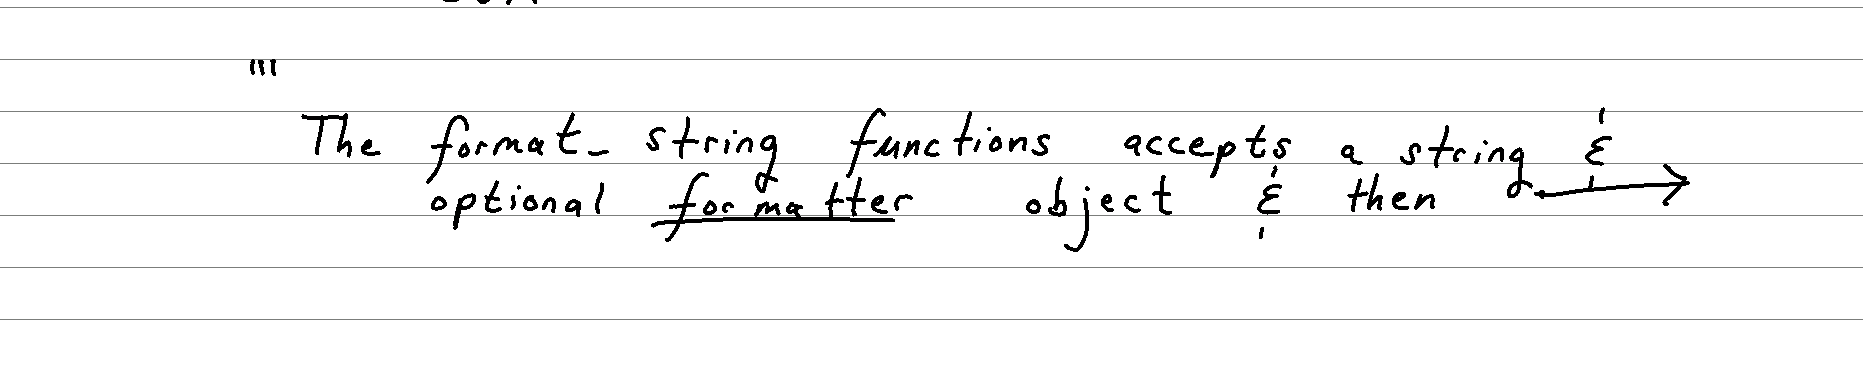 '''
The format_ string functions accepts a string &
optional formatter object & then